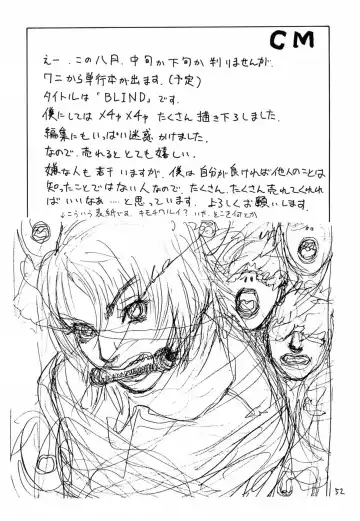 CM
えー、この八月、中旬か下旬か判りませんが、
ワニから単行本が出ます。(予定)
タイトルは「BLIND」です。
僕にしてはメチャメチャたくさん描き下ろしました。
編集にもいっぱい迷惑かけました。
なので、売れるととても嬉しい。
嫌な人も若干いますが、僕は自分が良ければ他人のことは
知ったことではない人なので、たくさん、たくさん売れてくれれば
いいなあ……と思っています。よろしくお願いします。
↓こういう表紙です。キモチワルイ?
52